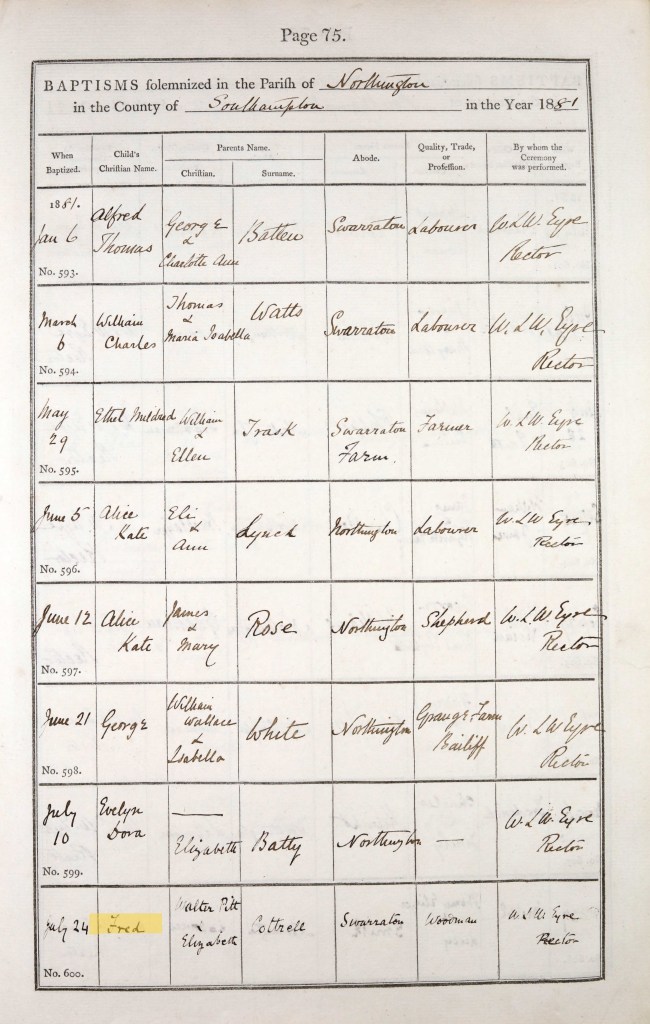 Page 75.
BAPTISMS solemnized in the Parish of Northington
in the County of Southampton in the Year 1881
When Baptized.
Child's Christian Name.
Parents Name.
Christian.
Surname.
Abode.
Quality, Trade, or Profession.
By whom the Ceremony was performed.
1881.
Jan 6
No. 593.
Alfred
Thomas
George
&
Charlotte Ann
Batten
Swarraton
Labourer
W. L. W. Eyre
Rector
March
6
No. 594.
William
Charles
Thomas
&
Maria Isabella
Watts
Swarraton
Labourer
W. L. W. Eyre
Rector
May
29
No. 595.
Ethel Mildred
William
&
Ellen
Trask
Swarraton
Farm.
Farmer
W. L. W. Eyre
Rector
June 5
No. 596.
Alice
Kate
Eli
&
Ann
Lynch
Northington
Labourer
W. L. W Eyre
Rector
June 12
No. 597.
Alice
Kate
James
&
Mary
Rose
Northington
Shepherd
W. L. W. Eyre
Rector
June 21
No. 598.
George
William
Wallace
&
Isabella
White
Northington
Grange Farm
Bailiff
W. L W Eyre
Rector
July
10
No. 599.
Evelyn
Dora
—
Elizabeth
Batty
Northington
—
W. L. W. Eyre
Rector
July 24
No. 600.
Fred
Walter Pitt
&
Elizabeth
Cottrell
Swarraton
Wooman
W. L. W. Eyre
Rector